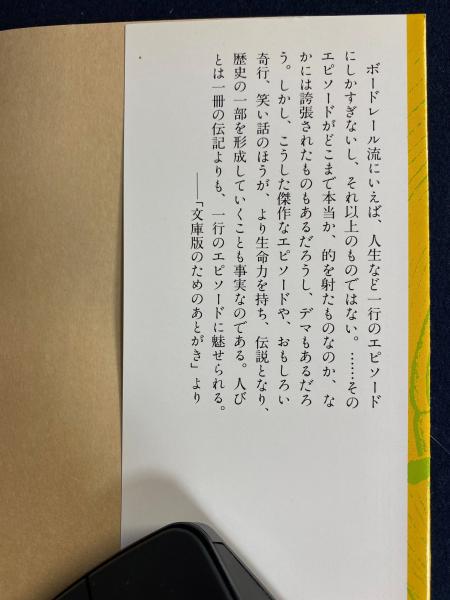 ボードレール流にいえば、人生など一行のエピソード
にしかすぎないし、それ以上のものではない。……その
エピソードがどこまで本当か、的を射たものなのか、な
かには誇張されたものもあるだろうし、デマもあるだろ
う。しかし、こうした傑作なエピソードや、おもしろい
奇行、笑い話のほうが、より生命力を持ち、伝説となり、
歴史の一部を形成していくことも事実なのである。人び
とは一冊の伝記よりも、一行のエピソードに魅せられる。
――「文庫版のためのあとがき」より